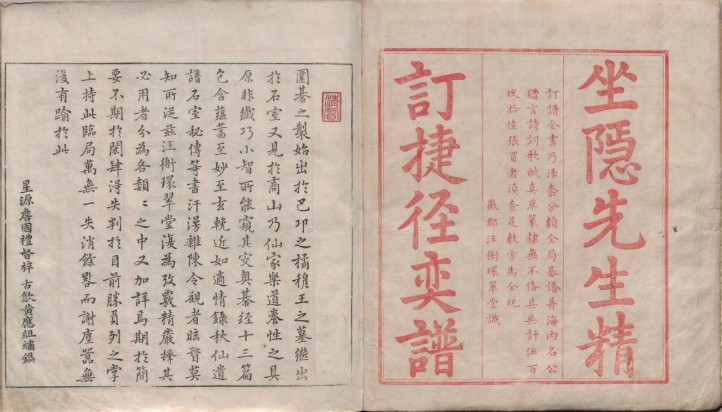 坐隱先生精
訂譜全書乃活套分類全局棊譜并海內名公
贈言詩詞歌賦真草篆隸無不俻具共計伍百
玖拾陸張買者須查足數方為全玩
徽郡汪衙環翠堂識
訂捷徑奕譜
圍碁之製始出於巴邛之橘穆王之墓繼出
於石室又見於商山乃仙家樂道養性之具
原非纖巧小智所能窺其突奧碁經十三篇
包含蘊蓄至妙至玄輓近如適情錄秋仙遺
譜石室秘傳等書汗漫雜陳令觀者眩瞀莫
知所從茲汪衙環翠堂復為攷覈精嚴擇其
必用者分為各類々之中又加詳焉期於簡
要不期於閎肆得失判於目前勝負列之掌
上持此臨局萬無一失消餘晷而謝塵囂無
復有踰於此
星源詹國禮督梓 古歙黃應組繡鐫